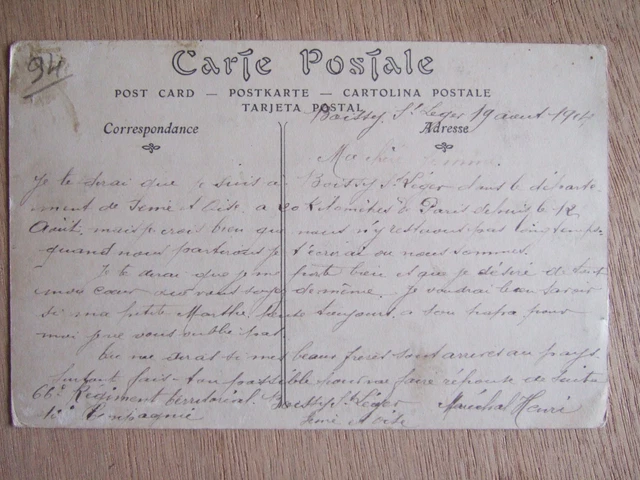 94
Carte Postale
POST CARD — POSTKARTE — CARTOLINA POSTALE
TARJETA POSTAL
Boissy St Léger 19 août 1914
Correspondance
Adresse
Ma chère femme
Je te dirai que je suis à Boissy St Léger dans le départe-
ment de Seine et Oise a 20 kilomètres de Paris depuis le 12
Août mais je crois bien que nous n'y resterons pas longtemps
quand nous partirons je t'écrirai ou nous sommes.
Je te dirai que je me porte bien et que je désire de tout
mon cœur que vous soyez de même. Je voudrai bien savoir
si ma petite Marthe toujours a son papa pour
moi je ne vous oublie pas.
Tu me diras si mes beaux frères sont au pays.
fais ton possible pour me faire réponse de suite
66e Régiment territorial Boissy St Léger Maréchal Henri
Compagnie Seine et Oise